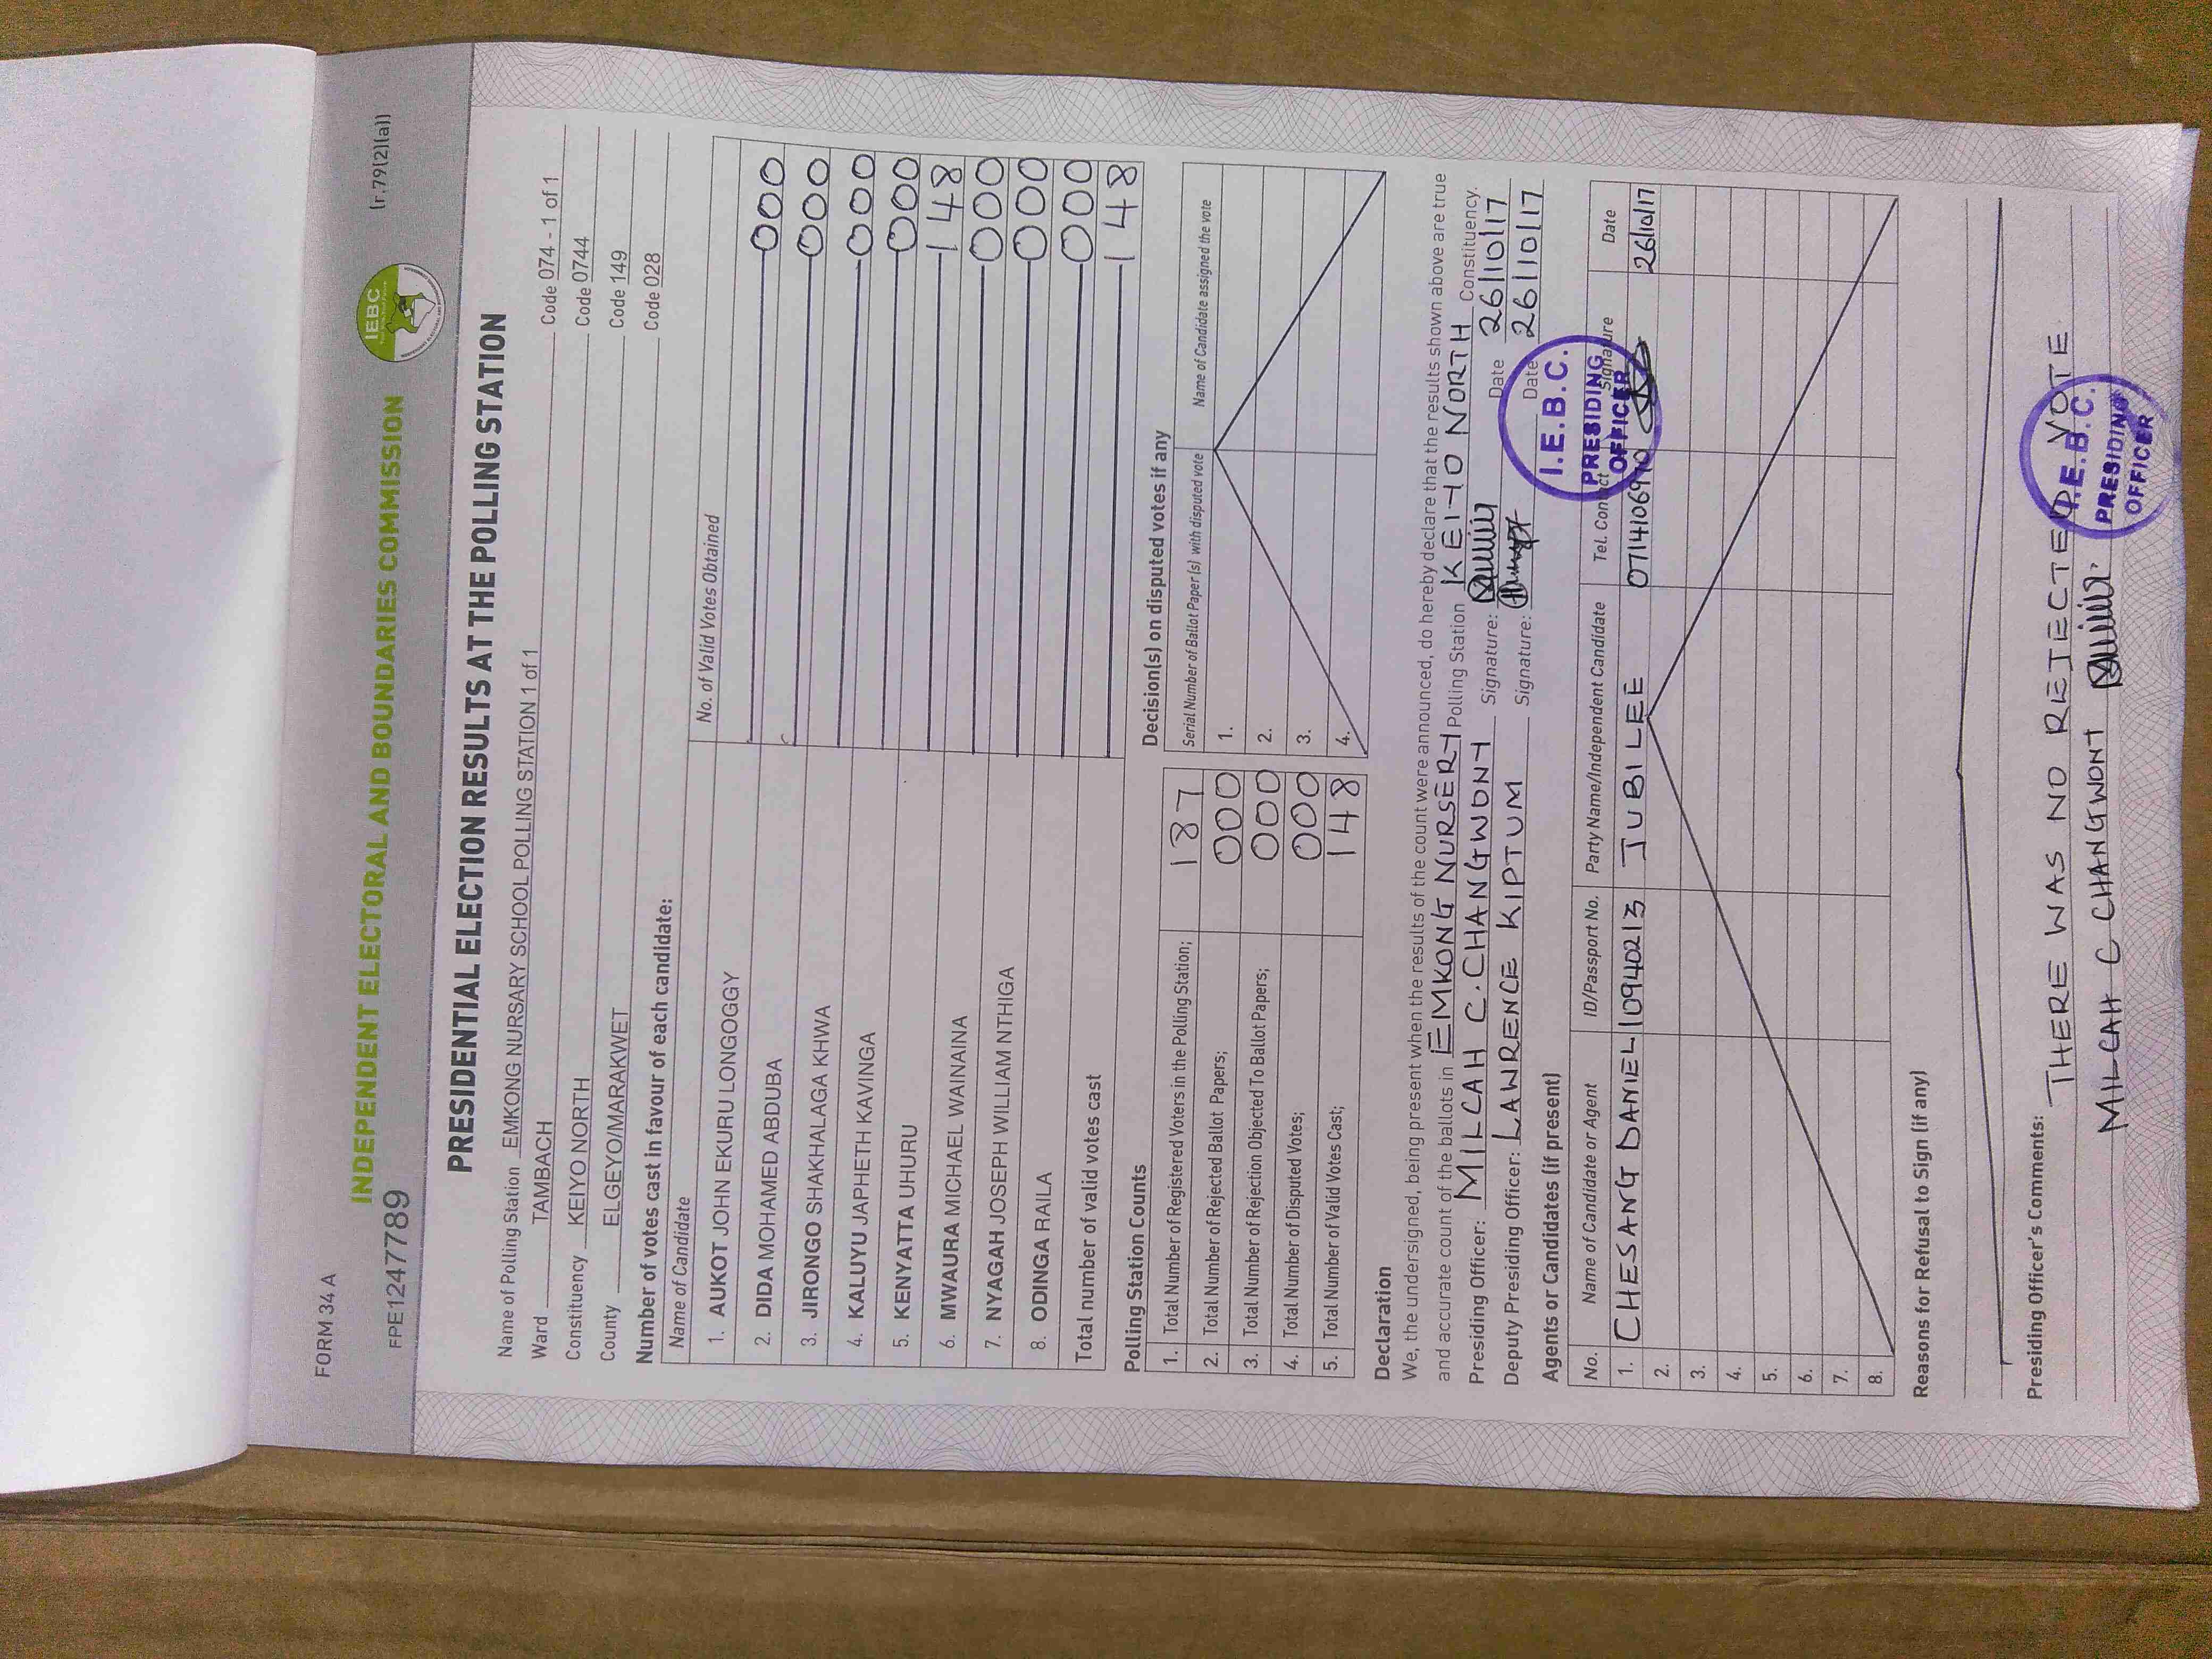 FORM 34 A
(r.79(2)(a))
FPE1247789
INDEPENDENT ELECTORAL AND BOUNDARIES COMMISSION
IEBC
PRESIDENTIAL ELECTION RESULTS AT THE POLLING STATION
Name of Polling Station EMKONG NURSARY SCHOOL POLLING STATION 1 of 1 Code 074 - 1 of 1
Ward TAMBACH Code 0744
Constituency KEIYO NORTH Code 149
County ELGEYO/MARAKWET Code 028
Number of votes cast in favour of each candidate:
Name of Candidate No. of Valid Votes Obtained
1. AUKOT JOHN EKURU LONGOGGY 000
2. DIDA MOHAMED ABDUBA 000
3. JIRONGO SHAKHALAGA KHWA 000
4. KALUYU JAPHETH KAVINGA 000
5. KENYATTA UHURU 148
6. MWAURA MICHAEL WAINAINA 000
7. NYAGAH JOSEPH WILLIAM NTHIGA 000
8. ODINGA RAILA 000
Total number of valid votes cast 148
Polling Station Counts
1. Total Number of Registered Voters in the Polling Station; 187
2. Total Number of Rejected Ballot Papers; 000
3. Total Number of Rejection Objected To Ballot Papers; 000
4. Total Number of Disputed Votes; 000
5. Total Number of Valid Votes Cast; 148
Decision(s) on disputed votes if any
Serial Number of Ballot Paper(s) with disputed vote Name of Candidate assigned the vote
1.
2.
3.
4.
Declaration
We, the undersigned, being present when the results of the count were announced, do hereby declare that the results shown above are true
and accurate count of the ballots in EMKONG NURSERY Polling Station KEIYO NORTH Constituency.
Presiding Officer: MILCAH C. CHANGWONY Signature: Date 26/10/17
Deputy Presiding Officer: LAWRENCE KIPTUM Signature: Date 26/10/17
I.E.B.C.
PRESIDING
OFFICER
Agents or Candidates (if present)
No. Name of Candidate or Agent ID/Passport No. Party Name/Independent Candidate Tel. Contact Signature Date
1. CHESANG DANIEL 10940213 JUBILEE 0714106970 26/10/17
2.
3.
4.
5.
6.
7.
8.
Reasons for Refusal to Sign (if any)
Presiding Officer's Comments:
THERE WAS NO REJECTED VOTE.
MILCAH C CHANGWONY
I.E.B.C.
PRESIDING
OFFICER